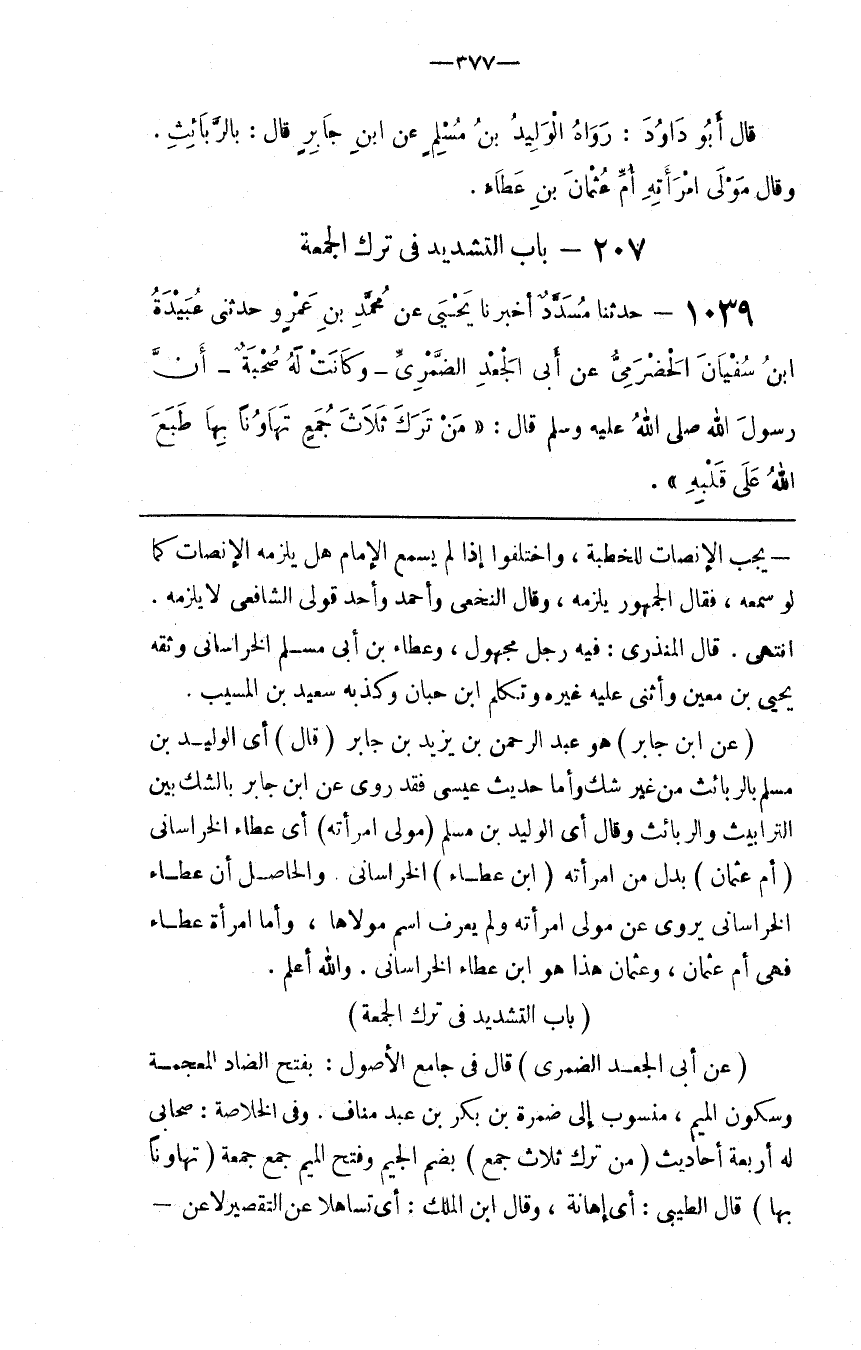 —٣٧٧—
قال أَبُو دَاوُدَ : رَوَاهُ الْوَلِيدُ بنُ مُسْلِمٍ عن ابنِ جاَبِرٍ قال : بالرَّبَائِثِ .
وقال مَوْلَى امْرَأَتِهِ أُمِّ عُثْمانَ بنِ عَطاَء .
٢٠٧ – باب التشديد فى ترك الجمعة
١٠٣٩ – حدثنا مُسَدَّدٌ أخبرنا يَحْـيَى عن مُحمَّدِ بنِ عَمْرٍو حدثنى عُبَيْدَةُ
ابنُ سُفْيَانَ الْحَضْرَمِىُّ عن أبى الْجَعْدِ الضَّمْرِىِّ – وكَانَتْ لَهُ صُحْبَةٌ – أَنَّ
رسولَ الله صلى اللهُ عليه وسلم قال : « مَنْ تَرَكَ ثَلَاثَ جُمَعٍ تَهاَوُناً بِهاَ طَبَعَ
اللهُ عَلَى قَلْبِهِ » .
– يجب الإنصات للخطبة ، واختلفوا إذا لم يسمع الإمام هل يلزمه الإنصات كما
لو سمعه ، فقال الجمهور يلزمه ، وقال النخعى وأحمد وأحد قولى الشافعى لايلزمه .
انتهى . قال المنذرى : فيه رجل مجهول ، وعطاء بن أبى مسـلم الخراسانى وثقه
يحيى بن معين وأثنى عليه غيره وتكلم ابن حبان وكذبه سعيد بن المسيب .
( عن ابن جابر ) هو عبد الرحمن بن يزيد بن جابر ( قال ) أى الوليـد بن
مسلم بالربائث من غير شك وأما حديث عيسى فقد روى عن ابن جابر بالشك بين
الترابيث والربائث وقال أى الوليد بن مسلم (مولى امرأته) أى عطاء الخراسانى
( أم عثمان ) بدل من امرأته ( ابن عطـاء ) الخراسانى . والحاصـل أن عطـاء
الخراسانى يروى عن مولى امرأته ولم يعرف اسم مولاها ، وأما امرأة عطـاء
فهى أم عثمان ، وعثمان هذا هو ابن عطاء الخراسانى . والله أعلم .
( باب التشديد فى ترك الجمعة )
( عن أبى الجعـد الضمرى ) قال فى جامع الأصول : بفتح الضاد المعجمـة
وسكون الميم ، منسوب إلى ضمرة بن بكر بن عبد مناف . وفى الخلاصة : صحابى
له أربعة أحاديث ( من ترك ثلاث جمع ) بضم الجيم وفتح الميم جمع جمعة ( تهاوناً
بها ) قال الطيبى : أى إهانة ، وقال ابن الملك : أى تساهلا عن التقصير لاعن –